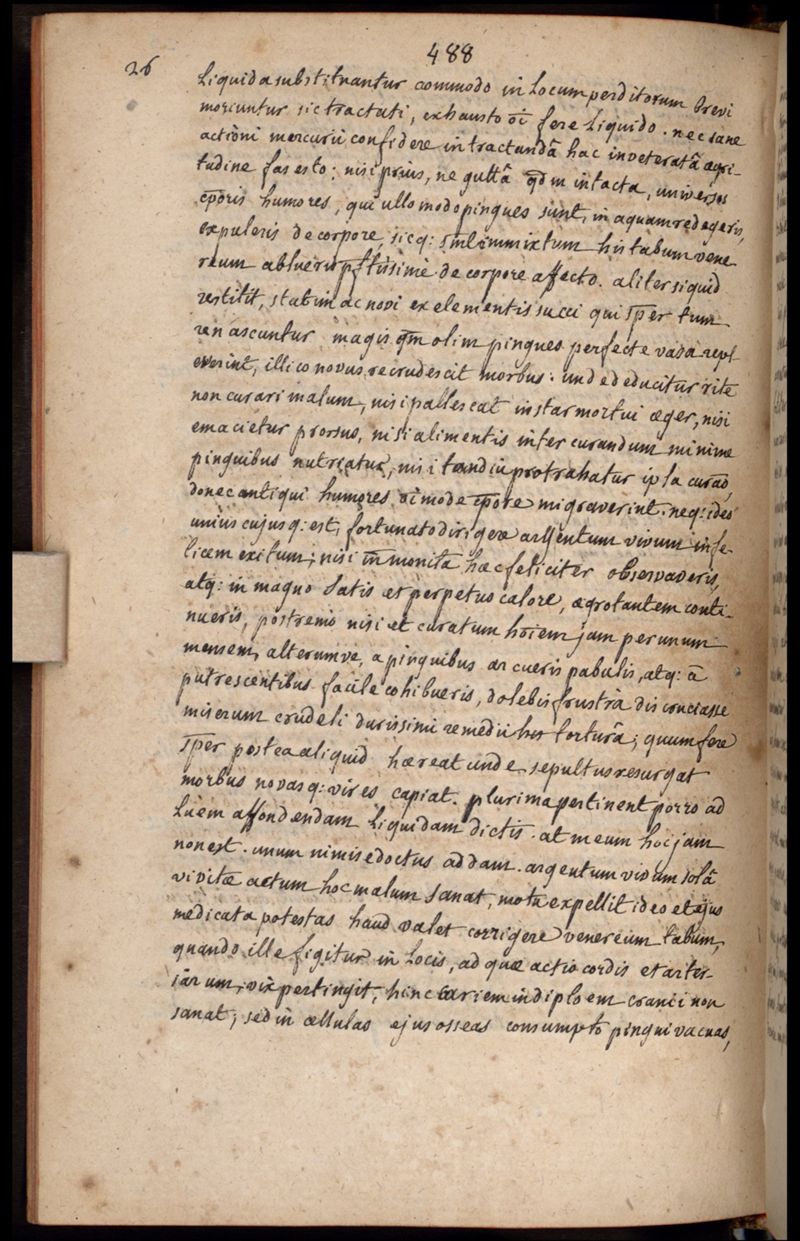 488
26
liquida substituantur commodo in locum perditorum brevi
moriuntur sic tractati, exhausto oī fere liquido. nec sane
actioni mercurii confidere in tractandâ hac inveteratâ ægri-
tudine fas esto; nisi prius, ne guttâ qdm intacta, universos
cporis humores, qui ullo modo pingues sunt, in aquam redegeris,
expuleris de corpore, sicq: sml immixtum his tabum vene
reum ablueris pttissime de corpore affecto. aliter siquid
restitit, statim ac novi ex elementis succi qui sper tum
renascuntur magis qm olim pingues perfecte vasa repl
everint, illico novus recrudescit morbus. unde educitur rite
non curari malum, nisi pallescat instar mortui æger, nisi
emacietur prorsus, nisi alimentis inter curandum minime
pinguibus nutriatur, nisi tandiu protrahatur ipsa curao,
donec antiqui humores oīmode cpore migraverint. neq: ideo
unius cujusq: est, fortunato dirigere argentum vivum infe-
licem exitum; nisi monita hæc feliciter observaveris,
atq: in magno satis et perpetuo calore, ægrotantem conti-
nueris, postremo nisi et curatum hoiem jam per unum
mensem, alterumve, a pinguibus arcueris pabulis, atq: â
putrescentibus facile cohibueris, dolebis frustrà discruciasse
miserum crudeli durissimi remedii torturâ; quum fere
sper postea aliquid hæreat unde sepultus resurgat
morbus novasq: vires capiat. plurima pertinent porro ad
luem affondendam liquidam dictis. at meum hoc jam
non est. unum nimis edoctus addam. argentum vivum solâ
vi vitæ actum hoc malum sanat, motu expellit ideo et ejus
medicata potestas haud valet corrigere venereum tabum,
quando ille figitur in locis, ad quæ actio cordis et arter-
iarum, vix pertingit, hinc cariem in diploem cranei non
sanat; sed in cellulas ejus osseas consumpto pingui vacuas,